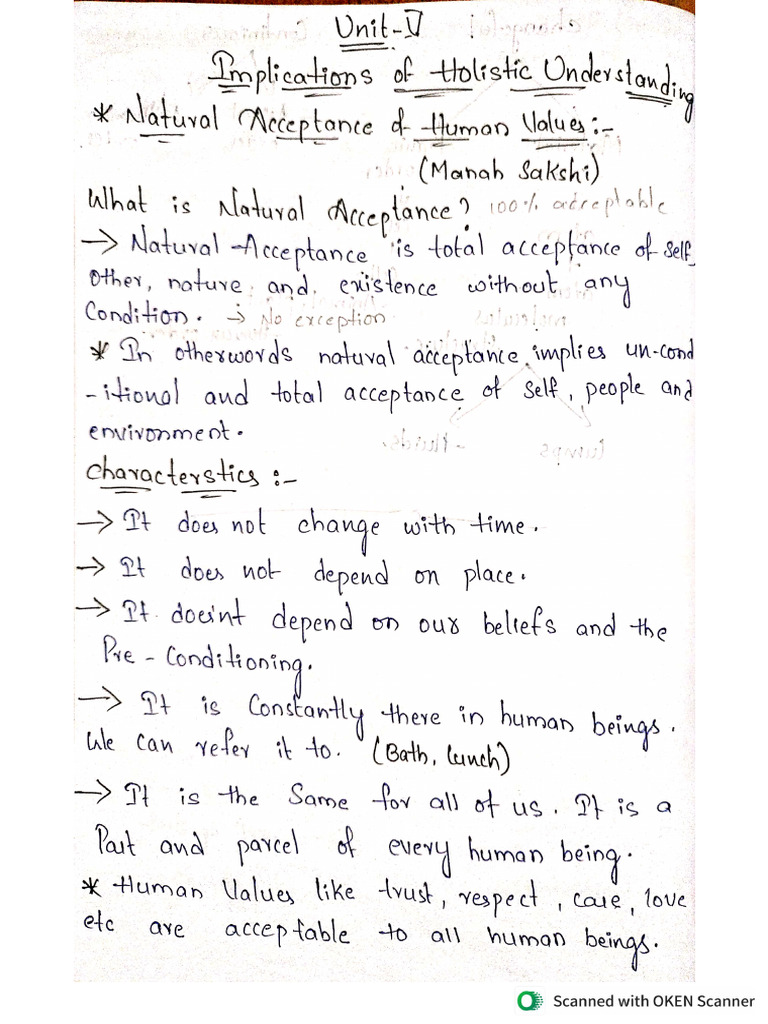 Unit-V
Implications of Holistic Understanding
* Natural Acceptance of Human Values:-
(Manah Sakshi)
What is Natural Acceptance? 100% adceptable
→ Natural Acceptance is total acceptance of self,
Other, nature and existence without any
Condition. → No exception
* In otherwords natural acceptance implies un-cond
-itional and total acceptance of self, people and
environment.
Characterstics:-
→ It does not change with time.
→ It does not depend on place.
→ It does'nt depend on our beliefs and the
Pre-Conditioning.
→ It is Constantly there in human beings.
We can refer it to. (Bath, lunch)
→ It is the Same for all of us. It is a
Part and parcel of every human being.
* Human Values like trust, respect, care, love
etc are acceptable to all human beings.
Scanned with OKEN Scanner